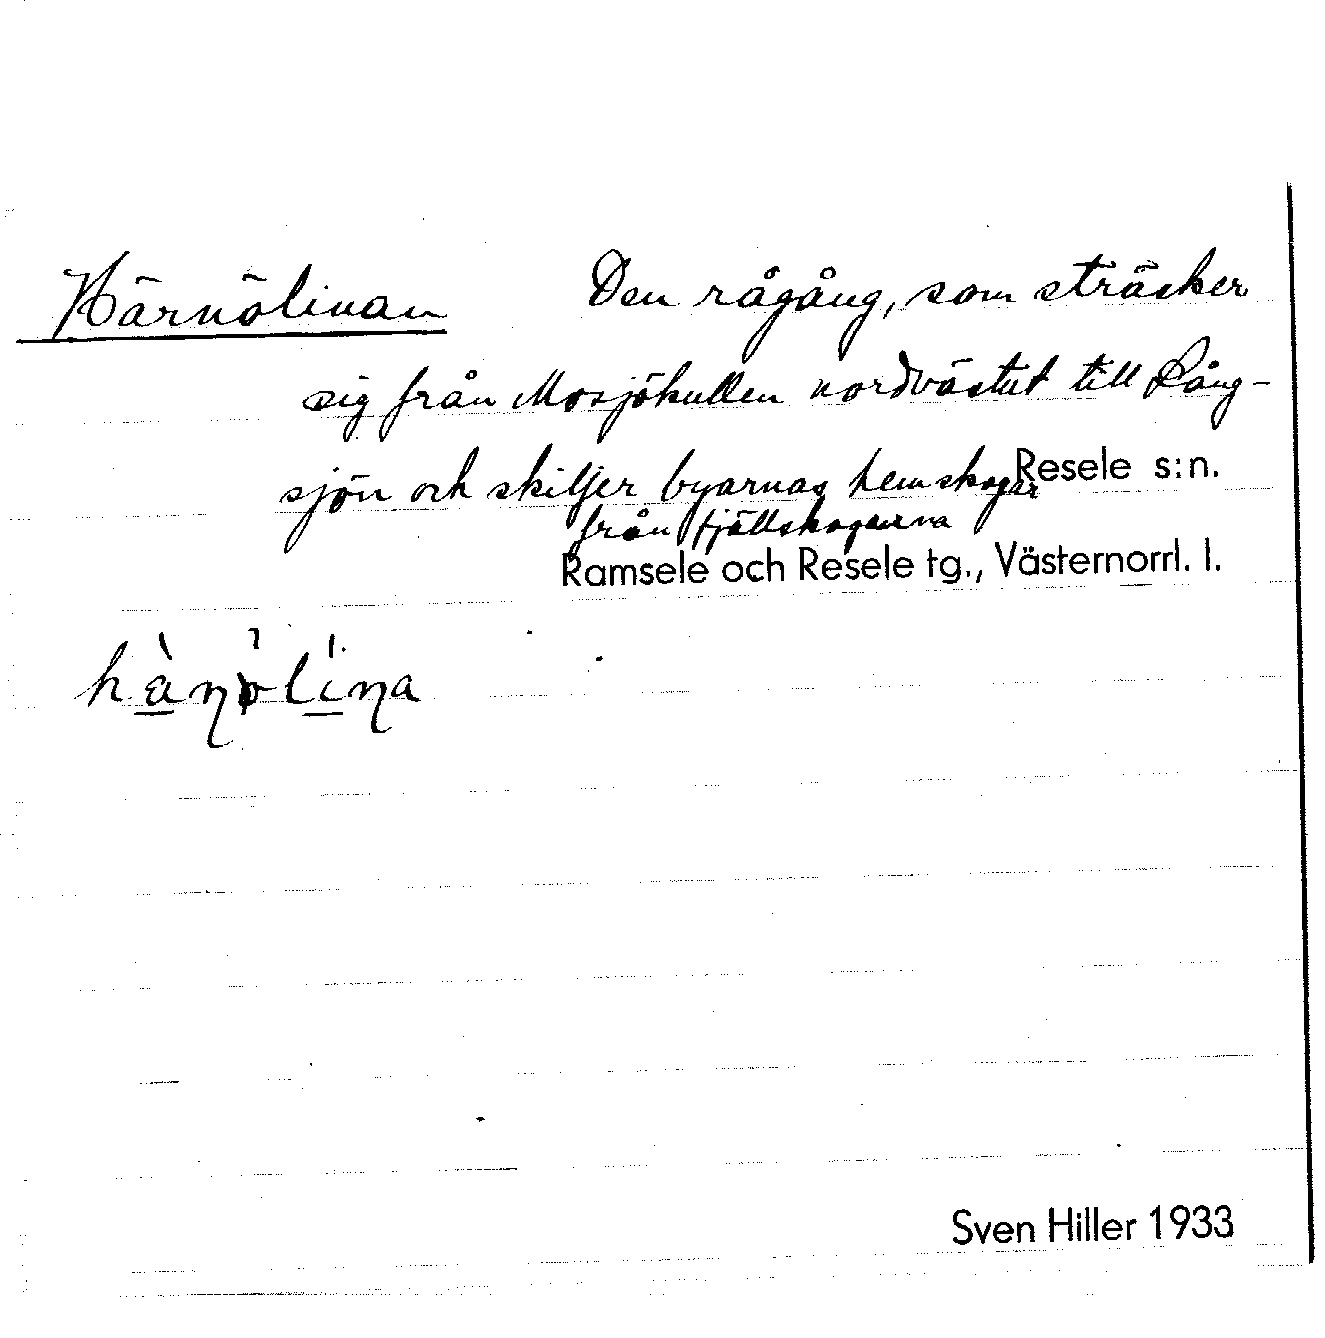 Härnölinan Den rågång, som sträcker
sig från Mosjökullen nordvästut till Lång-
sjön och skiljer byarnas hemskogar
från fjällskogarna
Resele s:n.
Ramsele och Resele tg., Västernorrl. l.
Sven Hiller 1933